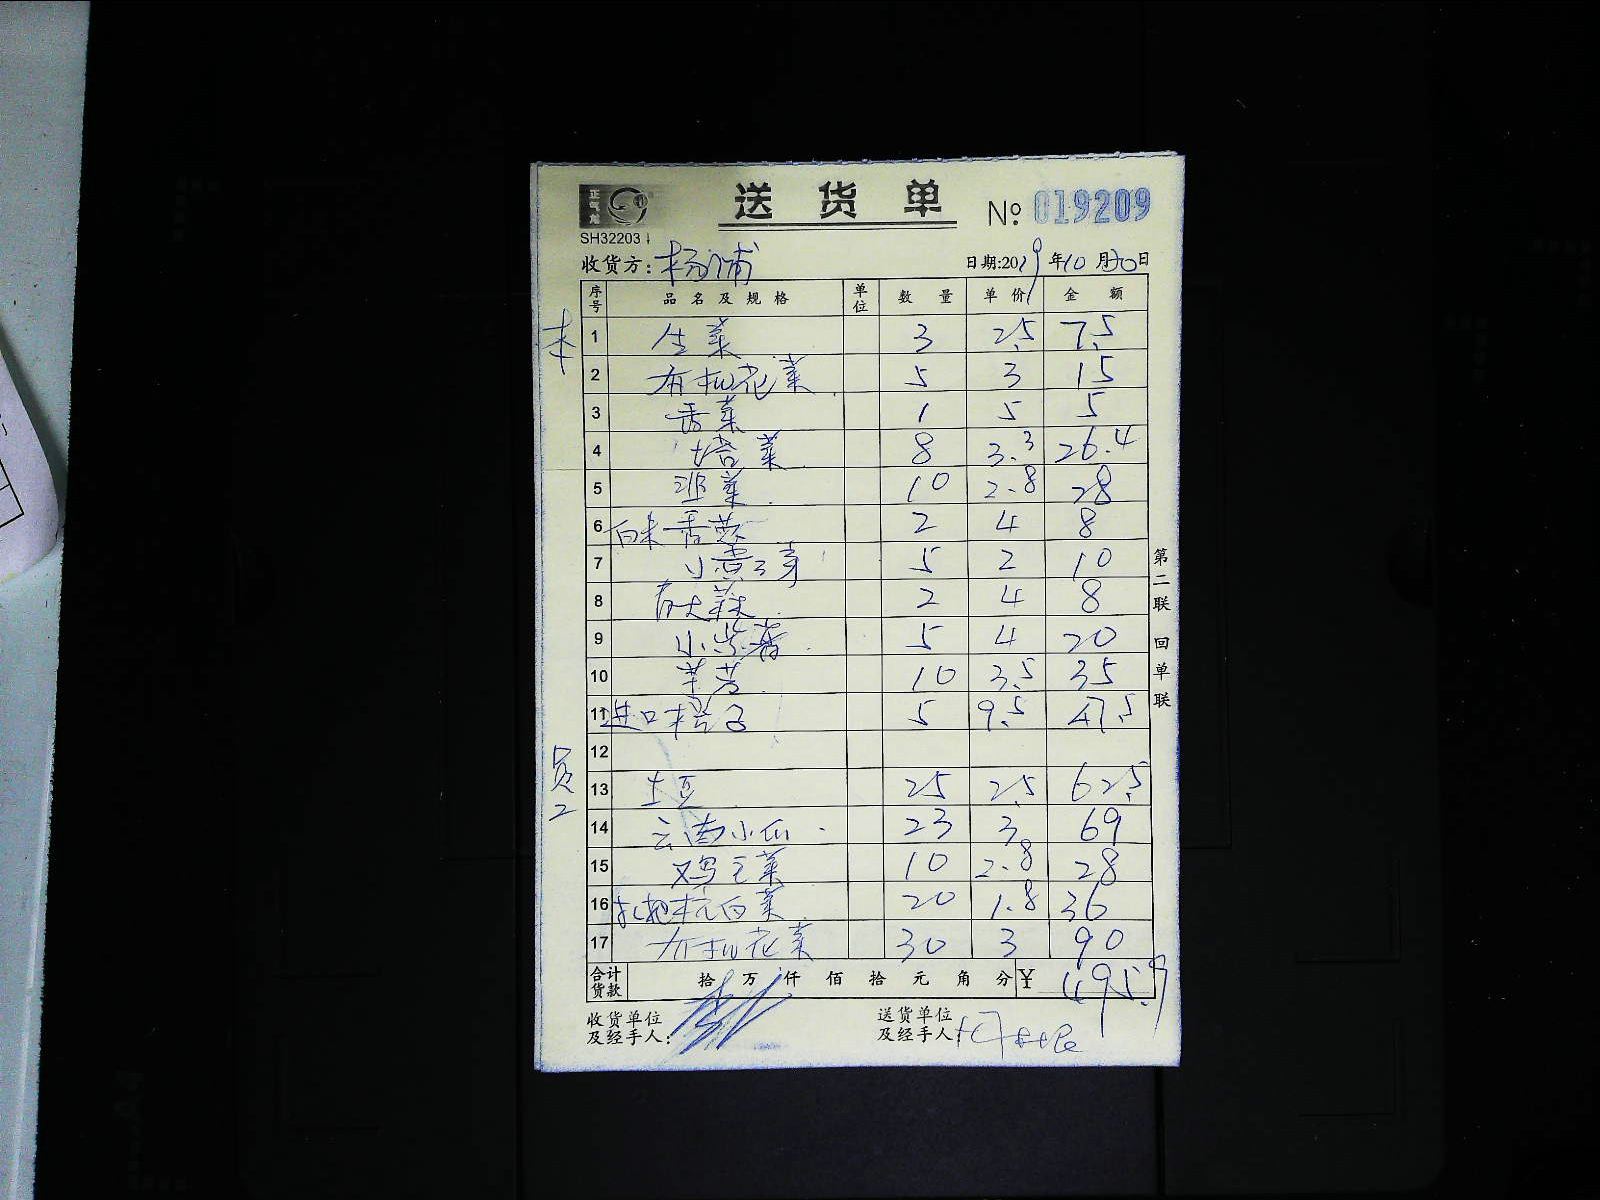 正气龙
送货单 № 019209
SH32203
收货方：杨浦 日期:2019年10月20日
序号 品名及规格 单位 数量 单价 金额
本
1 生菜 3 2.5 7.5
2 有机花菜 5 3 15
3 香菜 1 5 5
4 塔菜 8 3.3 26.4
5 韭菜 10 2.8 28
6 白米苋 2 4 8
7 小黄豆芽 5 2 10
8 大蒜 2 4 8
9 小紫薯 5 4 20
10 芋艿 10 3.5 35
11 进口橙子 5 9.5 47.5
12
员工
13 土豆 25 2.5 62.5
14 云南小瓜 23 3 69
15 鸡毛菜 10 2.8 28
16 杭白菜 20 1.8 36
17 有机花菜 30 3 90
合计货款 拾万仟佰拾元角分 ¥ 495.9
收货单位及经手人：
送货单位及经手人：
第二联 回单联